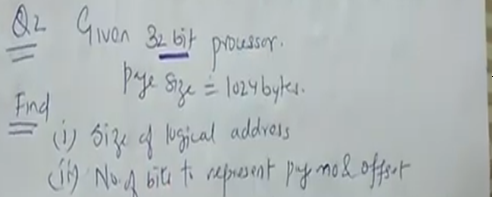 Q2 Given 32 bit processor.
Page Size = 1024 bytes.
Find
(i) Size of logical address
(ii) No. of bits to represent page no & offset